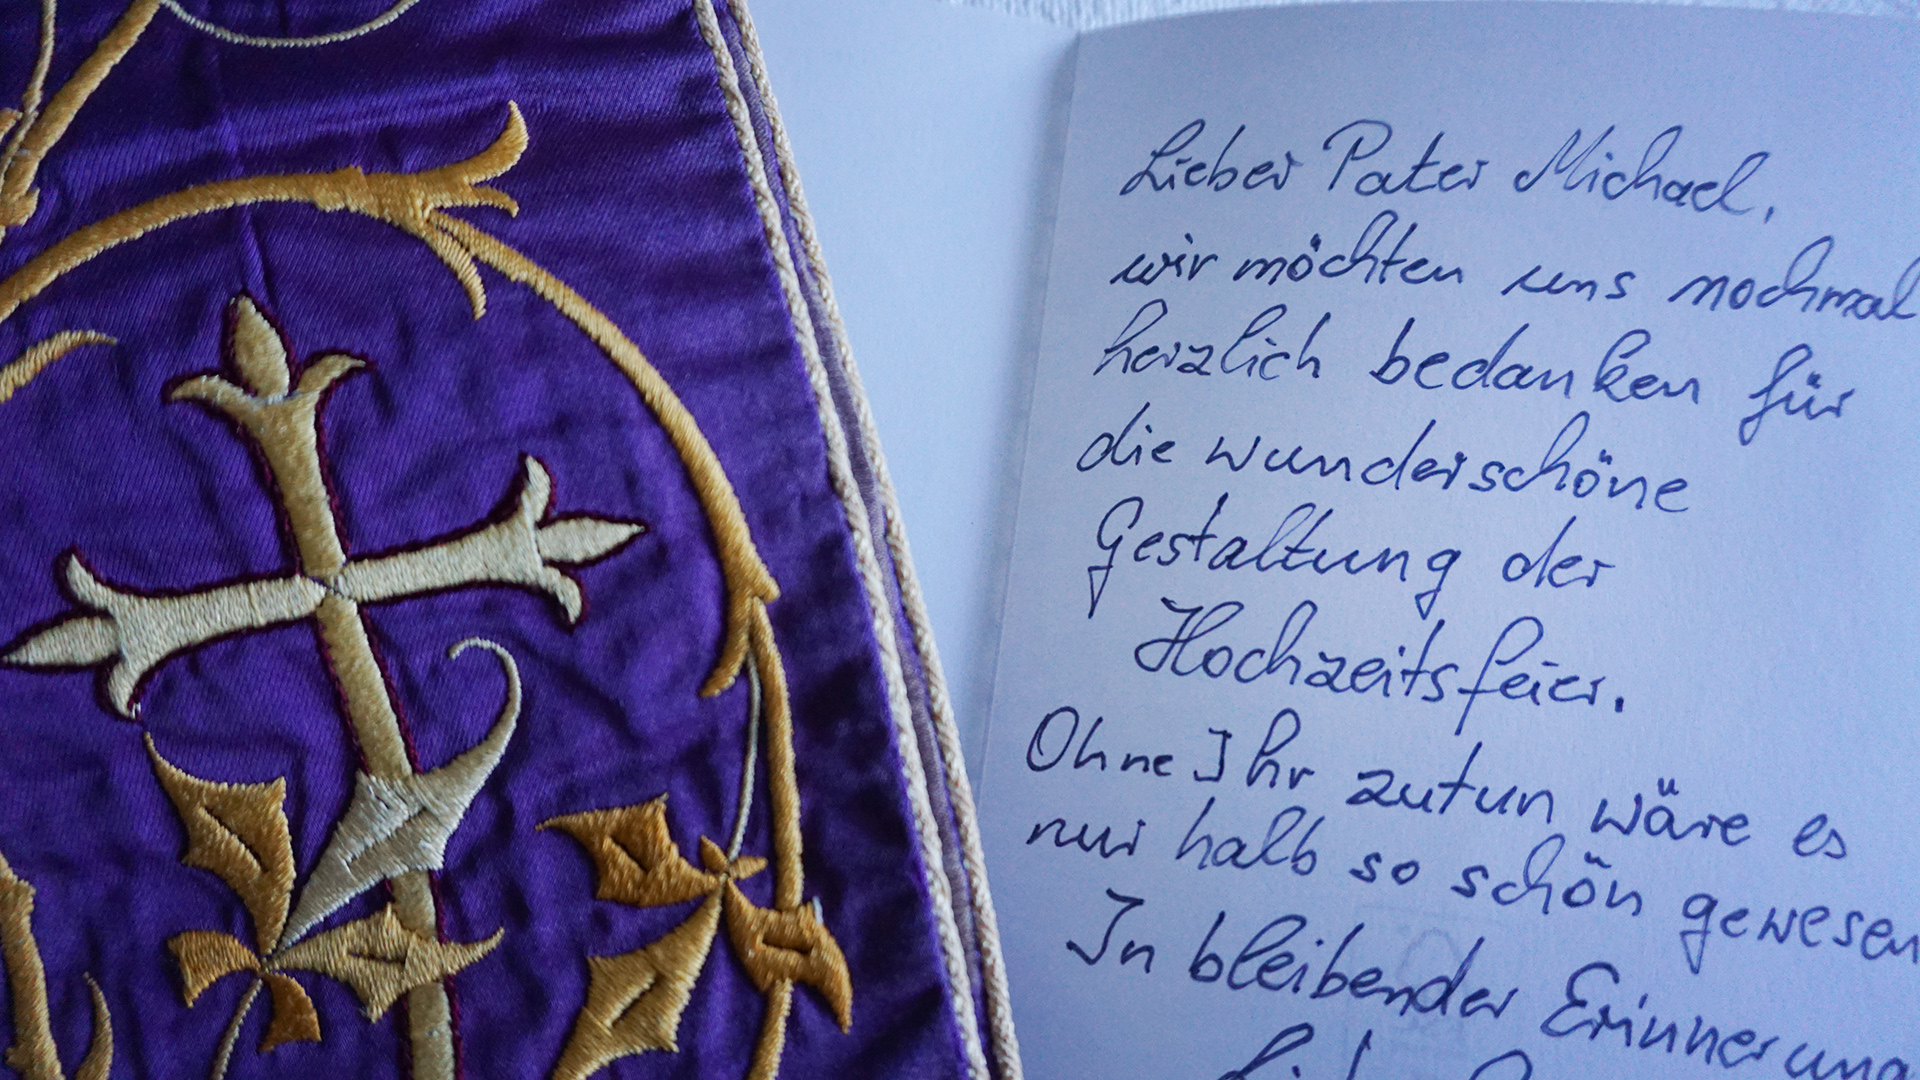 Lieber Pater Michael,
wir möchten uns nochmal
herzlich bedanken für
die wunderschöne
Gestaltung der
Hochzeitsfeier.
Ohne Ihr zutun wäre es
nur halb so schön gewesen
In bleibender Erinnerung